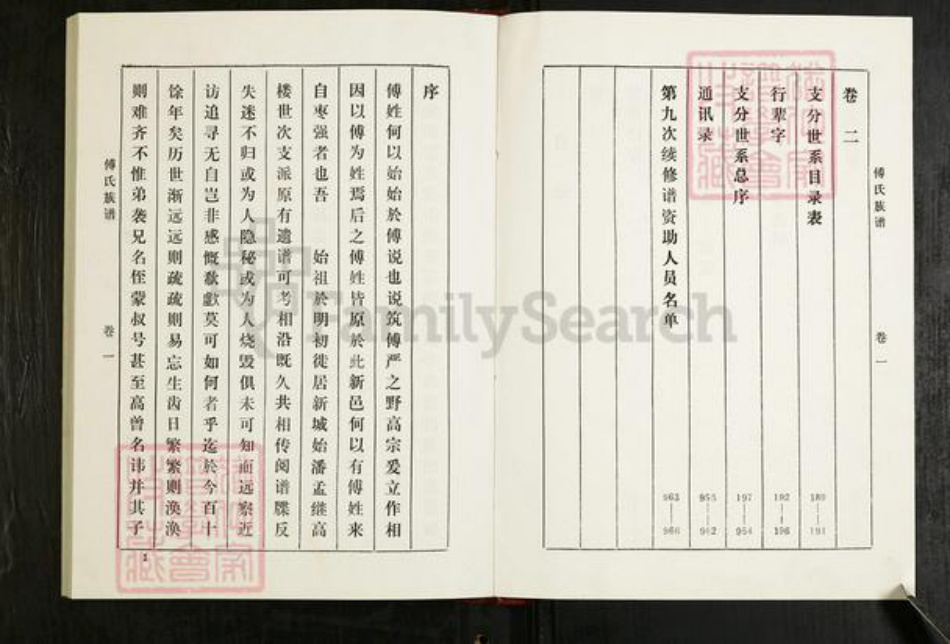 傅氏族谱
卷一
卷二
支分世系目录表 189—191
行辈字 192—196
支分世系总序 197—954
通讯录 955—962
第九次续修谱资助人员名单 963—966
序
傅姓何以始始於傅说也说筑傅严之野高宗爰立作相
因以傅为姓焉后之傅姓皆原於此新邑何以有傅姓来
自枣强者也吾 始祖於明初徙居新城始潘孟继高
楼世次支派原有遗谱可考相沿既久共相传阅谱牒反
失迷不归或为人隐秘或为人烧毁俱未可知而远察近
访追寻无自岂非感慨欷歔莫可如何者乎迄於今百十
馀年矣历世渐远远则疏疏则易忘生齿日繁繁则涣涣
则难齐不惟弟袭兄名侄蒙叔号甚至高曾名讳并其子
傅氏族谱
卷一
1
FamilySearch